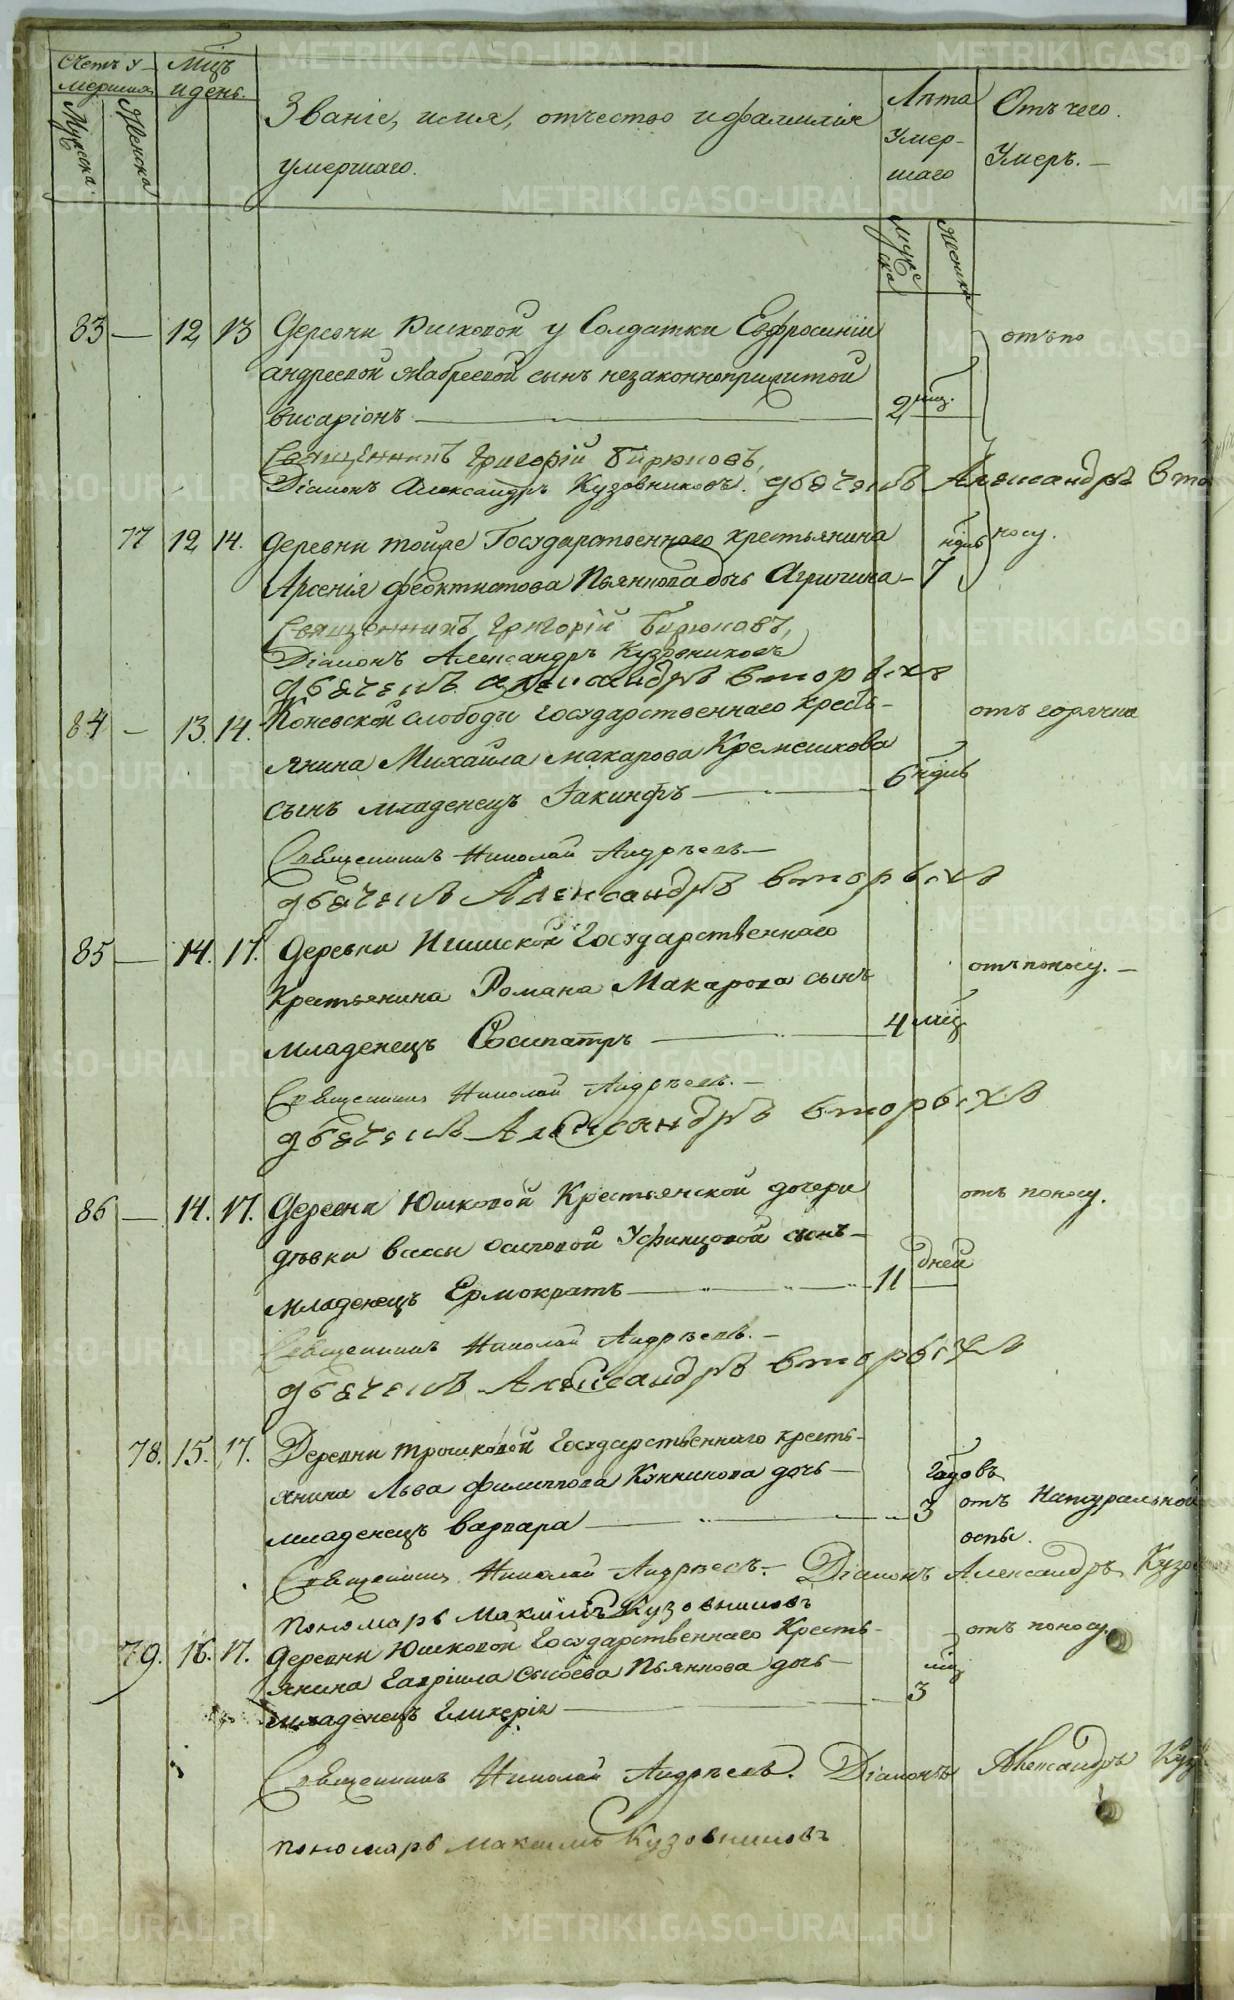 Счетъ у-
мершихъ
Мцъ
и день.
Мужска.
Женска
Званіе, имя, отчество и фамилія
умершаго.
Лѣта
Умер-
шаго
Отъ чего
Умеръ. —
Мужс
ска
Женска
83 — 12 13 Деревни Юшковой у Солдатки Евфросиніи отъ по
андреевой сынъ незаконноприжитой
висаріонъ — 2 мцъ.
Священникъ Григорій Бирюковъ,
Діаконъ Александръ Кузовниковъ. дьячекъ Александръ Вто
77 12 14. деревни Государственнаго крестьянина ндль носу.
Арсенія феоктистова Пьянкова дочь Агрипина — 7
Священникъ Григорій Бирюковъ,
Діаконъ Александръ Кузовниковъ
дьячекъ александръ вторыхъ
84 — 13. 14. Коневской слободы государственнаго кресть- отъ горячки
янина Михаила макарова Кремешкова
сынъ младенецъ Іакинфъ — 6 ндль
Священникъ Николай Андрѣевъ —
дьячекъ Александръ вторыхъ
85 — 14. 17. деревни Государственнаго
Крестьянина Романа Макарова сынъ отъ поносу. —
младенецъ Сосипатръ — 4 мцъ
Священникъ Николай Андрѣевъ. —
дьячекъ Александръ вторыхъ
86 — 14. 17. Деревни Юшковой Крестьянской дочери отъ поносу.
дѣвки вассы осиповой Уфинцовой сынъ —
младенецъ Ермократъ — 11 дней
Священникъ Николай Андрѣевъ. —
дьячекъ Александръ вторыхъ
78. 15. 17. Деревни трошковой Государственнаго кресть-
янина Льва филиппова дочь — годовъ
младенецъ варвара — 3 отъ Натуральной
оспы.
Священникъ Николай Андрѣевъ. — Діаконъ Александръ Кузо
пономарь Максимъ Кузовниковъ
79. 16. 17. деревни Юшковой Государственнаго Кресть- — отъ поносу.
янина Гавріила Сысоева Пьянкова дочь — мцъ
младенецъ Гликерія — 3
Священникъ Николай Андрѣевъ. Діаконъ Александръ Куз
пономарь максимъ Кузовниковъ
METRIKI.GASO-URAL.RU